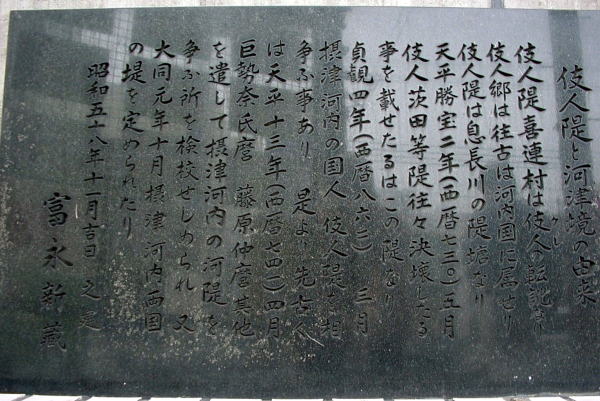 伎人隄と河津境の由来
伎人隄喜連村は伎人の転訛なり
クレ
伎人郷は往古は河内国に属せり
伎人隄は息長川の隄塘なり
天平勝宝二年(西暦七三〇)五月
伎人茨田等隄往々決壊したる
事を載せたるはこの隄なり
貞観四年(西暦八六二)三月
摂津河内の国人伎人隄を相
争ふ事あり 是より先古人
は天平十三年(西暦七四一)四月
巨勢奈氐麿 藤原仲麿其他
を遣して摂津河内の河隄を
争ふ所を検校せしめられ 又
大同元年十月摂津河内両国
の堤を定められたり
昭和五十八年十一月吉日 之建
富永新蔵